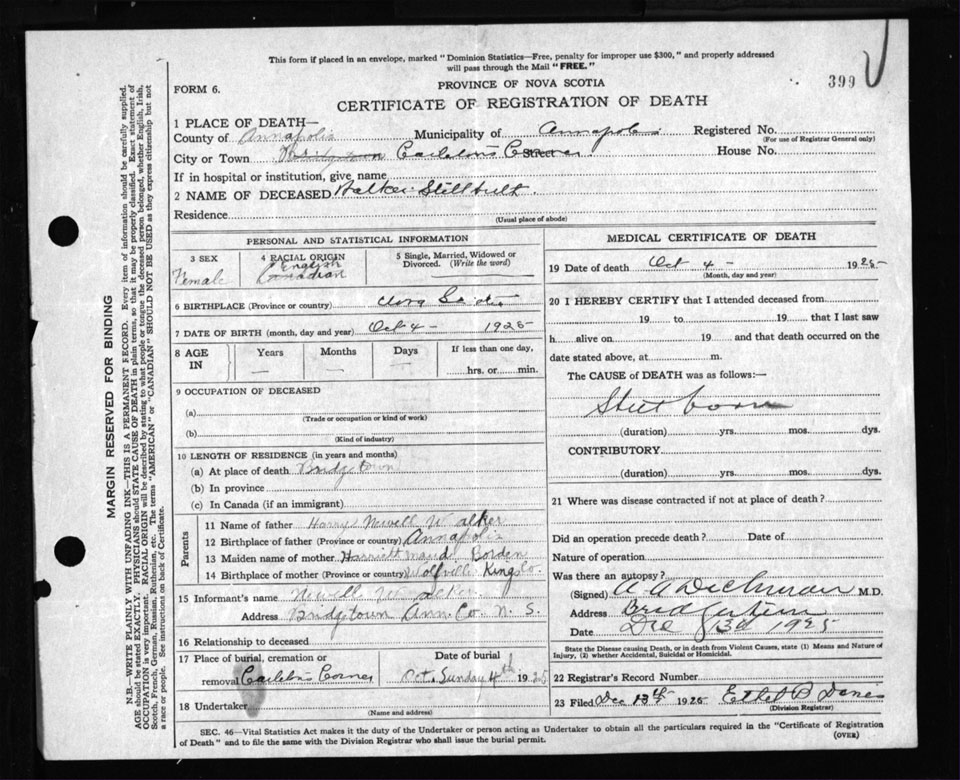 This form if placed in an envelope, marked "Dominion Statistics—Free, penalty for improper use $300," and properly addressed
will pass through the Mail "FREE."
399
FORM 6.
PROVINCE OF NOVA SCOTIA
CERTIFICATE OF REGISTRATION OF DEATH
1 PLACE OF DEATH—
County of Annapolis Municipality of Annapolis Registered No.
(For use of Registrar General only)
City or Town Bridgetown Carletons Corner House No.
If in hospital or institution, give name
2 NAME OF DECEASED Walker
Residence
(Usual place of abode)
PERSONAL AND STATISTICAL INFORMATION
3 SEX
Female
4 RACIAL ORIGIN
English
Canadian
5 Single, Married, Widowed or
Divorced. (Write the word)
6 BIRTHPLACE (Province or country) Nova Scotia
7 DATE OF BIRTH (month, day and year) Oct 4 - 1925
8 AGE IN Years Months Days If less than one day,
— — — hrs. or min.
9 OCCUPATION OF DECEASED
(a)
(Trade or occupation or kind of work)
(b)
(Kind of industry)
10 LENGTH OF RESIDENCE (in years and months)
(a) At place of death Bridgetown
(b) In province
(c) In Canada (if an immigrant)
Parents
11 Name of father Harry Newell Walker
12 Birthplace of father (Province or country) Annapolis
13 Maiden name of mother Harriett Maud Borden
14 Birthplace of mother (Province or country) Wolfville Kings Co.
15 Informant's name Newell Walker
Address Bridgetown Ann Co. N. S.
16 Relationship to deceased
17 Place of burial, cremation or Date of burial
removal Carletons Corner Oct. Sunday 4th 1925
18 Undertaker
(Name and address)
MEDICAL CERTIFICATE OF DEATH
19 Date of death Oct 4 - 1925
(Month, day and year)
20 I HEREBY CERTIFY that I attended deceased from
19 to 19 that I last saw
h alive on 19 and that death occurred on the
date stated above, at m.
The CAUSE of DEATH was as follows:—
Still born
(duration) yrs. mos. dys.
CONTRIBUTORY
(duration) yrs. mos. dys.
21 Where was disease contracted if not at place of death?
Did an operation precede death? Date of
Nature of operation
Was there an autopsy?
(Signed) A A Dechman M.D.
Address Bridgetown
Date Dec 1925
State the Disease causing Death, or in death from Violent Causes, state (1) Means and Nature of
Injury, (2) whether Accidental, Suicidal or Homicidal.
22 Registrar's Record Number
23 Filed Dec 1925 Ethel B
(Division Registrar)
SEC. 46—Vital Statistics Act makes it the duty of the Undertaker or person acting as Undertaker to obtain all the particulars required in the "Certificate of Registration
of Death" and to file the same with the Division Registrar who shall issue the burial permit.
(OVER)
MARGIN RESERVED FOR BINDING
N.B.—WRITE PLAINLY WITH UNFADING INK—THIS IS A PERMANENT RECORD. Every item of information should be carefully supplied.
AGE should be stated EXACTLY. PHYSICIANS should STATE CAUSE OF DEATH in plain terms, so that it may be properly classified. Exact statement of
OCCUPATION is very important. RACIAL ORIGIN will be described by stating to what people or tongue the deceased person belonged, whether English, Irish,
Scotch, French, German, Russian, Ruthenian, etc. The terms "AMERICAN" or "CANADIAN" SHOULD NOT BE USED as they express citizenship but not
a race or people. See instructions on back of Certificate.